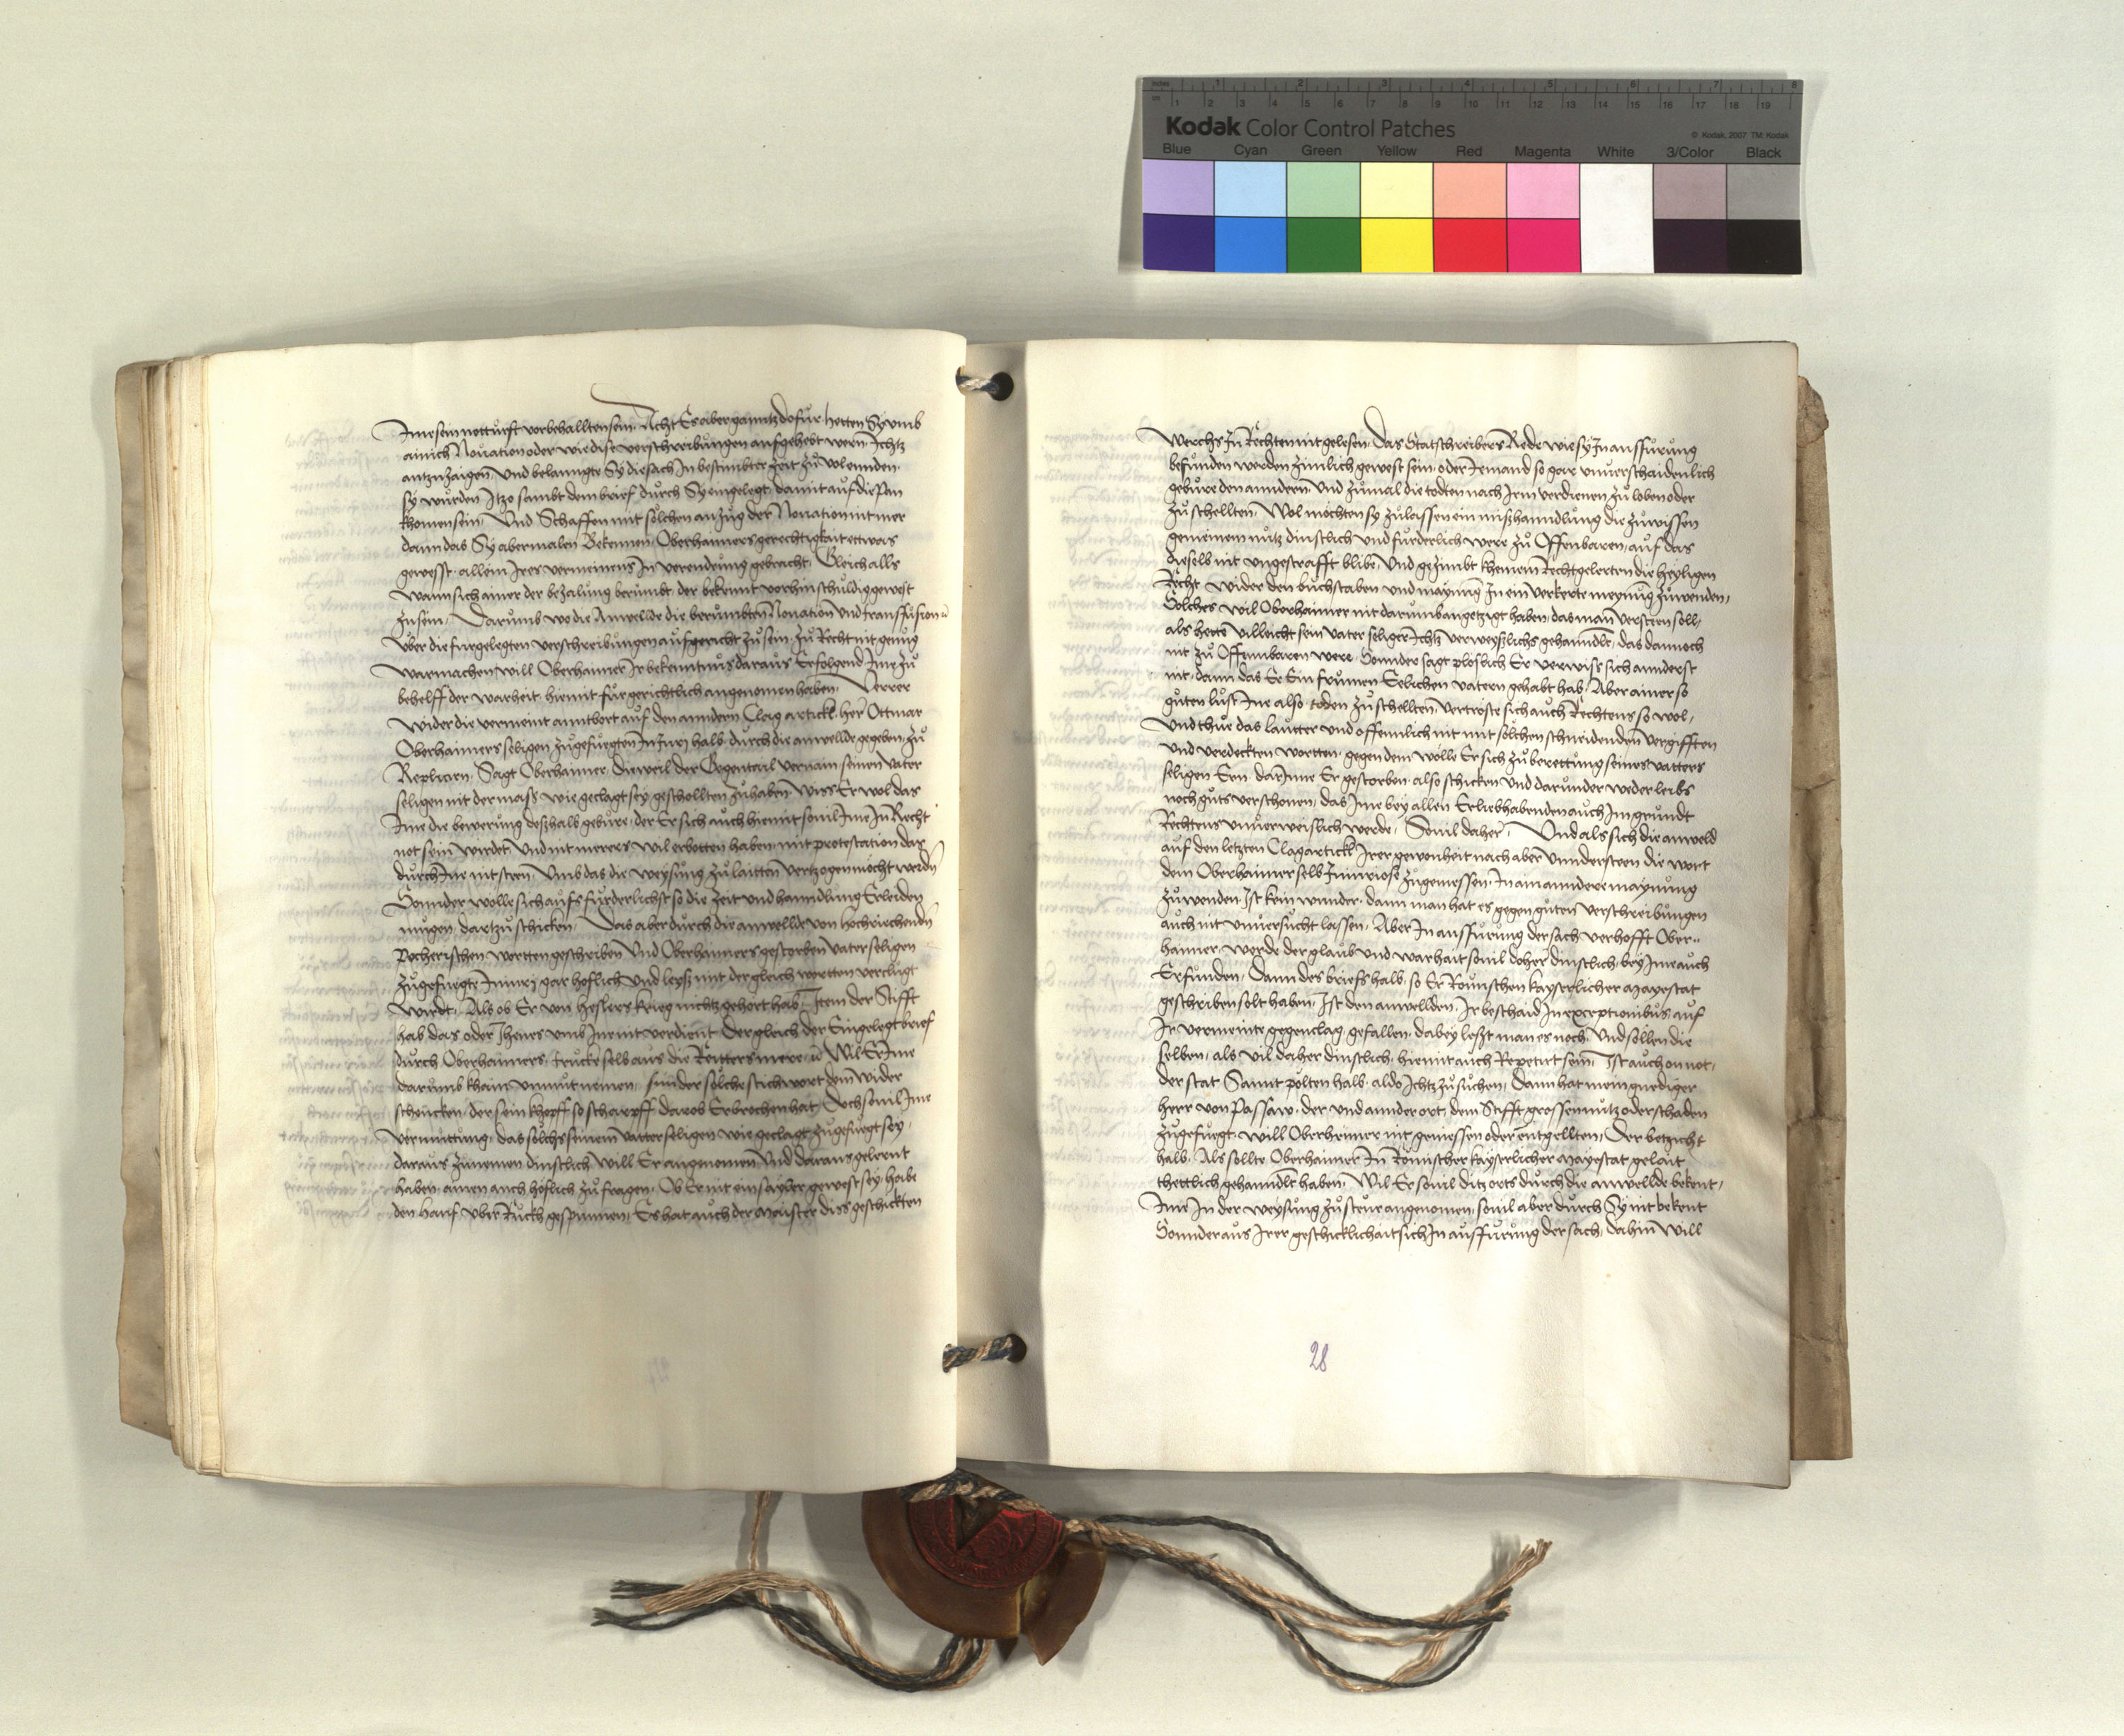 Kodak Color Control Patches
© Kodak, 2007 TM: Kodak
Blue Cyan Green Yellow Red Magenta White 3/Color Black
Ime sein notturft vorbehallten sein. Acht Es aber ganntz dofur, hetten Sy umb
ainich Novation oder wie dise verschreibungen aufgehebt wern Ichtz
antzuzaigen, Und belanngte Sy die sach In bestimbter Zeit zu volennden.
sy wurden Itzo sambt dem brief durch Sy eingelegt, damit auf die Pan
khomen sein, Und Schaffen mit solchem anzug der Novation nit mer
dann das Sy abermalen Bekennen, Oberhaimers gerechtigkait ettwas
gewesst. allein Ires vermeinens In verendrung gebracht. Gleich alls
wann sich ainer der bezalung berumbt. der bekennt vorhin schuldig gewest
zu sein, Darumb wo die Anwellde die berumbten Novation und transfusion
Uber die furgelegten verschreibungen aufgericht zu sein. zu Recht nit genug
warmachen will Oberhaimer Ir bekenntnus daraus Erfolgend Ime zu
behelff der warheit. hiemit fur gerichtlich angenomen haben, Verrer
wider die vermeint anntbort auf den anndern Clag artickl. her Ottmar
Oberhaimers seligen zugefuegten Injurj halb. durch die anwellde gegeben. zu
Replicirn. Sagt Oberhaimer. dieweil der Gegentail vernain. seinen Vater
seligen nit dermass wie geclagt sey gescholten zu haben. Wiss Er wol das
Ime die bewerung deshalb gebure. der Er sich auch hiemit sovil Ime In Recht
not sein wirdet, Und nit merers wil erbotten haben. mit protestation das
durch Ine nit steen, Umb das die weysung zu laitten verzogen mocht werdn
Sonnder wolle sich aufs furderlichst so die Zeit und hanndlung Erleiden
mugen, dartzu schicken, Das aber durch die anwellde von hochriechenden
Pocherischen wortten geschriben Und Oberhaimers gestorben vater seligen
zugefuegte Injurj gar hoflich und leyss mit dergleich wortten verclugt
wirdt, Als ob Er von heslers krieg nichtz gehort hab, Item der Stifft
hab das oder Jhenes umb Ine nit verdient. Der gleich der Eingelegt brief
durch Oberhaimers. trucke selb aus die Ritters mere, Wil Er Ime
darumb khain unmut nemen, sunder solche stichwort dem wider
schencken, der sein khopff so scharpff darob Erbrochen hat. Doch sovil Ime
vermuttung, das solchs seinem vatter seligen wie geclagt zugefuegt sey,
daraus zunemen dinstlich. will Er angenomen Und daraus gelernt
haben. ainen auch hoflich zu fragen. Ob Er nit ein sayler gewest sey. habe
den hanf uber Ruckh gespunnen, Es hat auch der Maister diss geschickten
Werchs In Rechten nit gelesen. Das Statschreibers Rede wie sy In ausfurung
befunden werden zimlich gewest sein. oder Iemand so gar unverschaidenlich
gebure den anndern. Und zumal die todten nach Irm verdienen zu loben oder
zu schellten, Wol mochten sy zulassen ein misshanndlung die zu wissen
gemeinem nutz dinstlich und furderlich were zu Offenbaren, auf das
dieselb nit ungestrafft blibe, Und gezimbt kheinem Rechtgelerten die heyligen
Recht wider den buchstaben und maynung In ein verkerte meynung zuwenden,
Solches wil Oberhaimer nit darumb angetzaigt haben, das man versteen soll,
als hette villeicht sein vater seliger Ichtz verweyslichs gehanndlt, das dannoch
nit zu Offennbaren were. Sonnder sagt ploslich Er verwiss sich annderst
nit, dann das Er Ein frumen Erlichen vatern gehabt hab, Aber ainer so
guten lust Ine also toden zu schellten. vertroste sich auch Rechtens so wol,
Und thue das lautter und offennlich nit mit solchen schneidenden vergifften
und verdeckten wortten. gegen dem wolle Er sich zu berettung seines vatters
seligen Ern. darInne Er gestorben. also schicken Und darunder weder leibs
noch guts verschonen, das Ime bey allen Erliebhabenden auch Im grundt
Rechtens unverweislich werde. Sovil daher, Und als sich die anweld
auf den letzten Clagartickl Irer gewonheit nach aber Unndersteen die wort
dem Oberhaimer selb Injuriose zugemessen, In ain anndere maynung
zuwenden. Ist kein wunder. dann man hat es gegen guten verschreibungen
auch nit unversucht lassen, Aber In ausfurung der sach verhofft Ober-
haimer, werde der glaub und warhait sovil doher dinstlich, bey Ime auch
Erfunden, Dann des briefs halb. so Er Romischen kayserlicher Mayestat
geschriben solt haben, Ist den anwellden, Ir beschaid In exceptionibus auf
Ir vermeinte gegenclag. gefallen, dabey lesst man es noch, Und sollen die
selben, als vil daher dinstlich, hiemit auch Repetirt sein, Ist auch on not,
der stat Sannt polten halb. aldo Ichtz zu suchen, dann hat mein gnediger
herr von Passaw, der und annder ort, dem Stifft grossen nutz oder schaden
zugefuegt. will Oberheimer nit geniessen oder entgellten, Der betzicht
halb. Als sollte Oberhaimer In Romischer kayserlicher Mayestat gelait
thettlich gehanndlt haben, Wil Er sovil ditz orts durch die anwellde bekent,
Ime In der weysung zu steur angenomen, sovil aber durch Sy nit bekent
Sonnder aus Irer geschicklichait sich In ausfurung der sach, dahin will
28